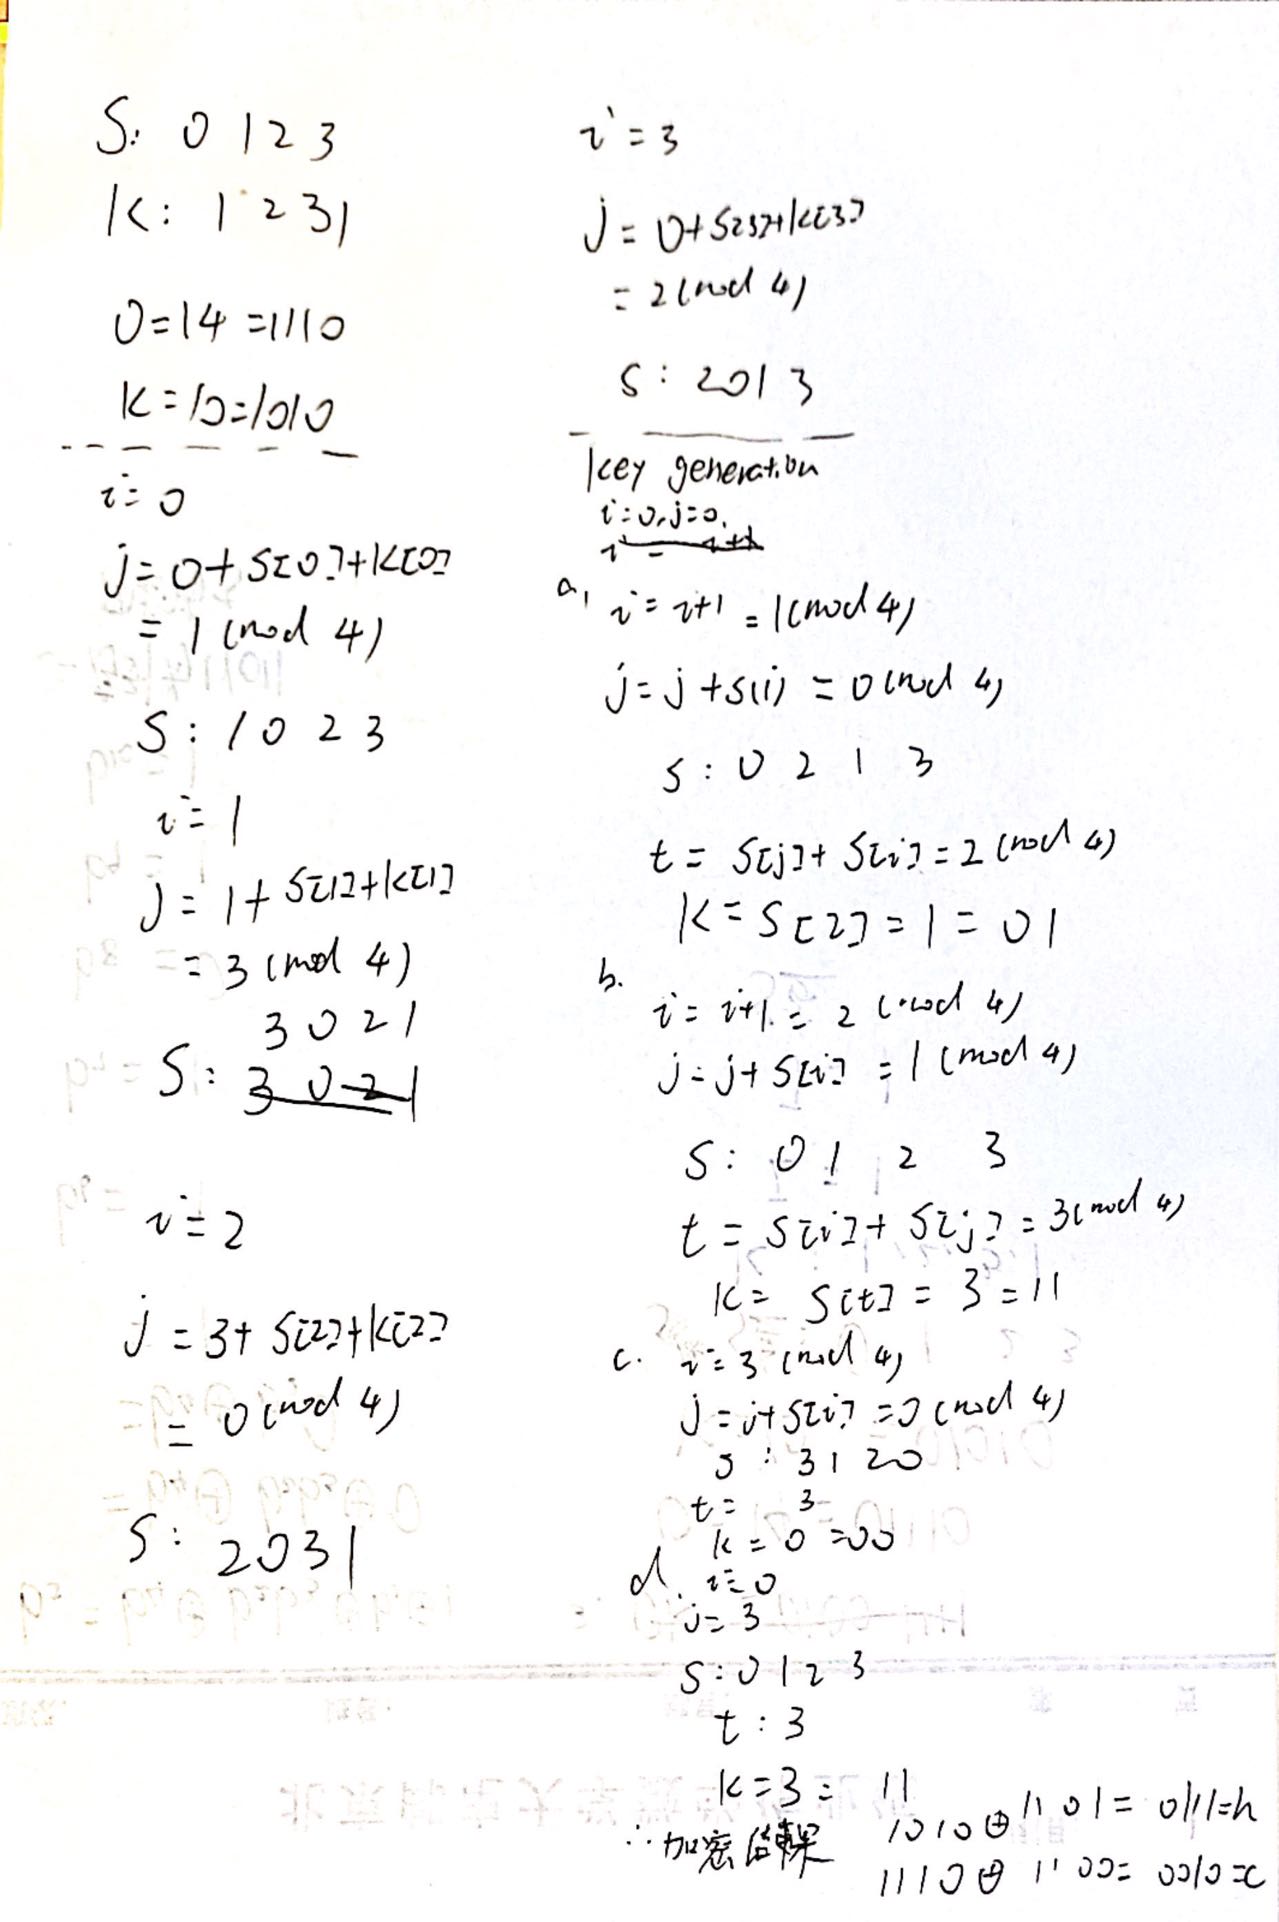 S: 0 1 2 3
K: 1 2 3 1
O=14=1110
K=10=1010
i=0
j=0+S[0]+K[0]
=1 (mod 4)
S: 1 0 2 3
i=1
j=1+S[1]+K[1]
=3 (mod 4)
3 0 2 1
S: 3 0 2 1
i=2
j=3+S[2]+K[2]
=0 (mod 4)
S: 2 0 3 1
i=3
j=0+S[3]+K[3]
=2 (mod 4)
S: 2 0 1 3
key generation
i=0, j=0.
a, i=i+1=1 (mod 4)
j=j+S(i)=0 (mod 4)
S: 0 2 1 3
t=S[j]+S[i]=2 (mod 4)
K=S[2]=1=01
b.
i=i+1=2 (mod 4)
j=j+S[i]=1 (mod 4)
S: 0 1 2 3
t=S[i]+S[j]=3 (mod 4)
K=S[t]=3=11
c. i=3 (mod 4)
j=j+S[i]=0 (mod 4)
S: 3 1 2 0
t= 3
K=0=00
d. i=0
j=3
S: 0 1 2 3
t: 3
K=3=11
∴加密结果 1010⊕1101=0111=h
1110⊕1100=0010=c